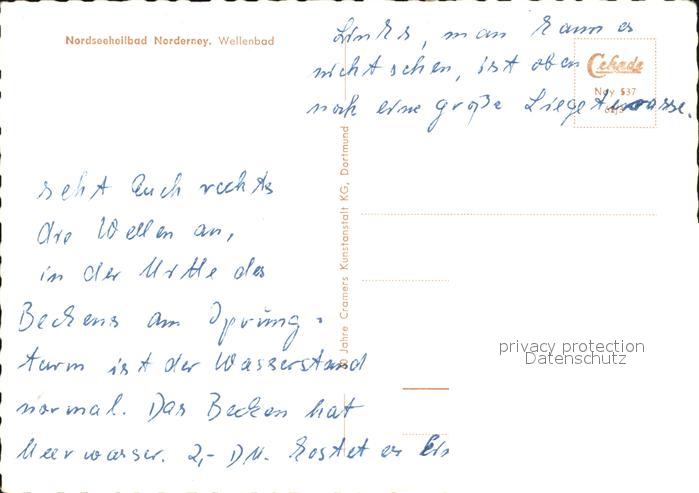 Nordseeheilbad Norderney. Wellenbad
Links, man kann es
nicht sehen, ist oben
noch eine große Liegeterrasse.
Cekade
Ney 537
seht Euch rechts
die Wellen an,
in der Mitte des
Beckens am Sprung-
turm ist der Wasserstand
normal. Das Becken hat
Meerwasser. 2,- DM. kostet es
Jahre Cramers Kunstanstalt KG, Dortmund
privacy protection
Datenschutz